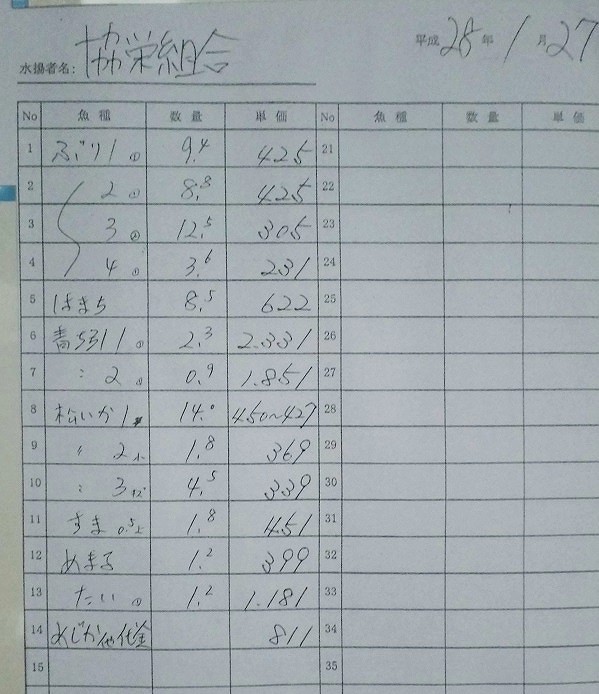 水揚者名: 協栄組合 平成 28 年 1 月 27
No 魚種 数量 単価 No 魚種 数量 単価
1 ぶり1 ① 9.4 425 21
2 2 ① 8.8 425 22
3 3 ② 12.5 305 23
4 4 ① 3.6 231 24
5 はまち 8.5 622 25
6 2.3 2.331 26
7 〃 2 0.9 1.851 27
8 松いか1 14.0 450~427 28
9 〃 2小 1.8 369 29
10 〃 3 4.5 339 30
11 すま 0.5上 1.8 451 31
12 めまる 1.2 399 32
13 たい 1.2 1.181 33
14 めじか 代金 811 34
15 35